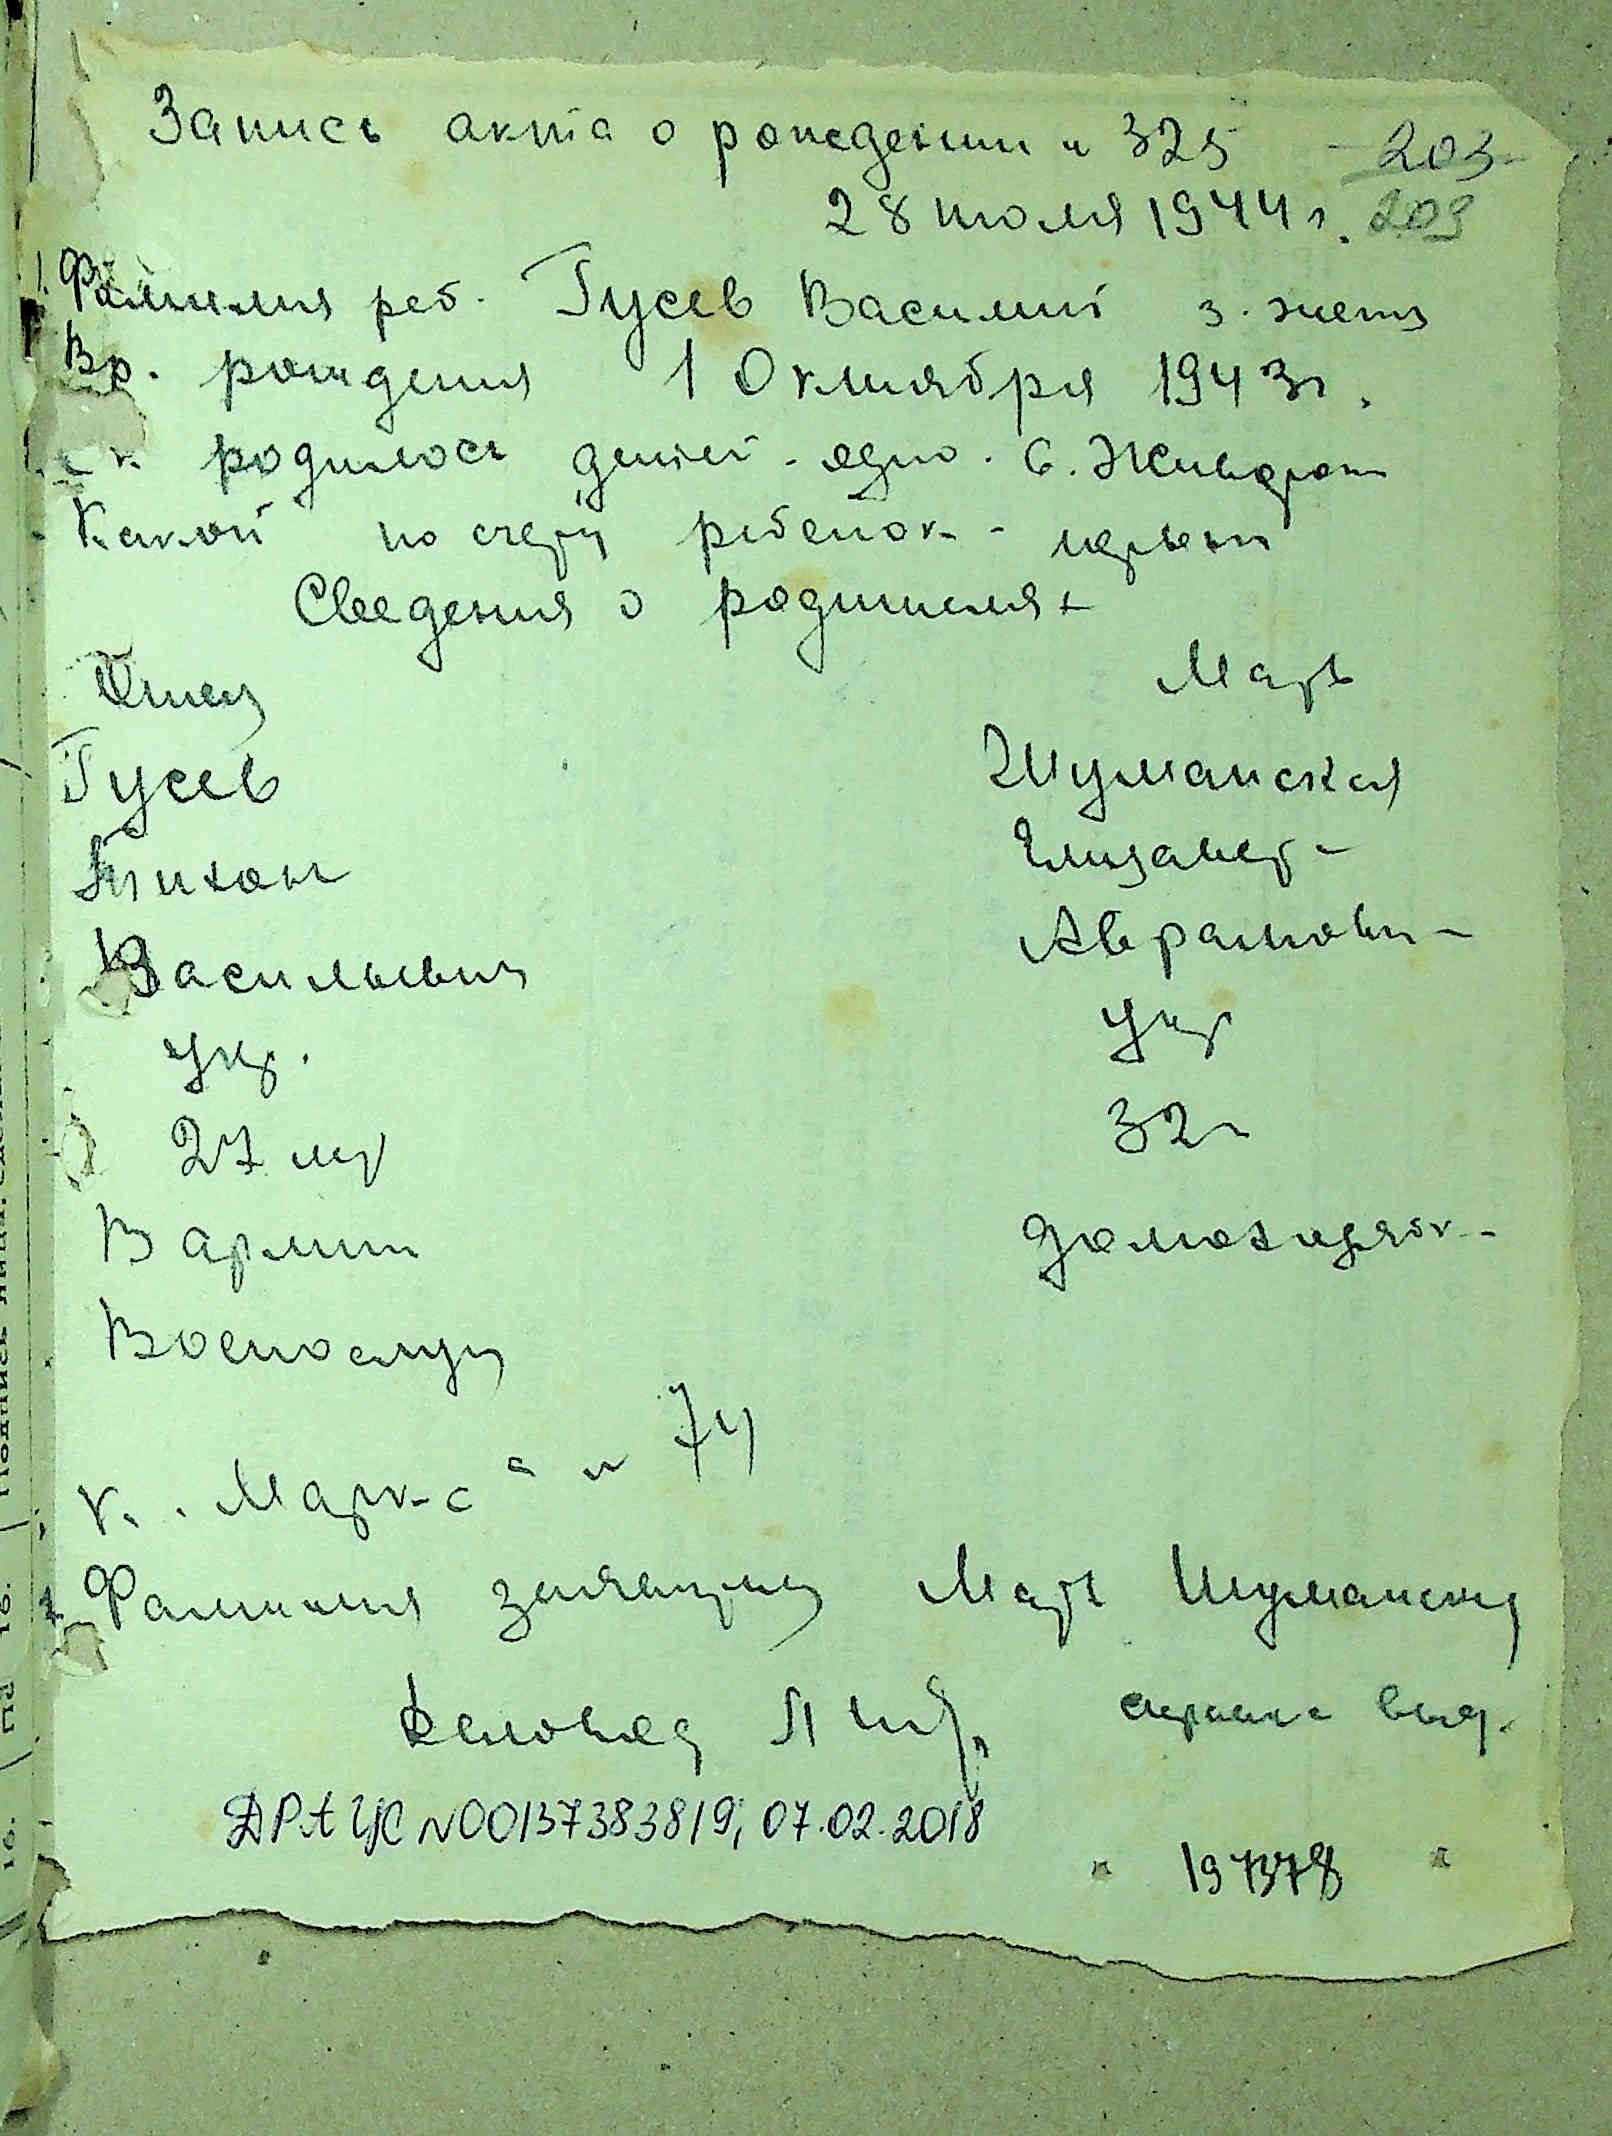 Запись акта о рождении н 325 203
28 июля 1944 г. 209
1. Фамилия реб. Гусев Василий
Вр. рождения 1 Октября 1943 г.
родилось детей - одно.
Какой по счету ребенок - первый
Сведения о родителях
Отец Мать
Гусев Шуманская
Тихон Елизавет-
Васильевич Аврамовн-
Укр. Укр
27 лет 32 г
В армии домохозяйк-
Военослуж
К. Маркса н 74
Фамилия Мать Шуманск
Деловод справка выд.
ДРАЦС N00137383819, 07.02.2018